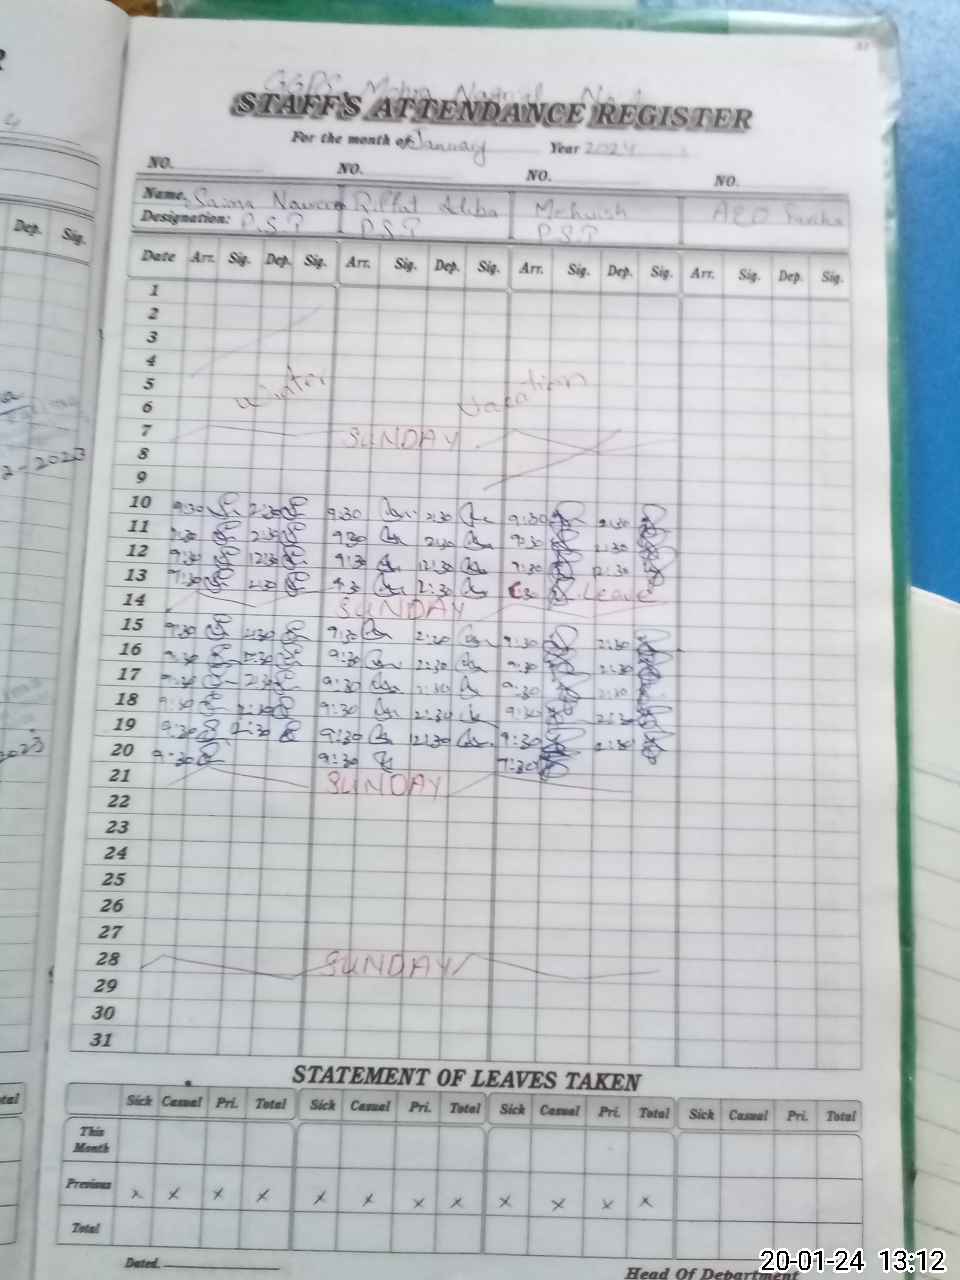 GGPS Mohra
STAFF'S ATTENDANCE REGISTER
For the month of January Year 2024
NO. NO. NO. NO.
Name, Saima Riffat Adiba Mehwish AEO
Designation: P.S.T P.S.T P.S.T
Dep. Sig. Date Arr. Sig. Dep. Sig. Arr. Sig. Dep. Sig. Arr. Sig. Dep. Sig. Arr. Sig. Dep. Sig.
1
2
3
4
5
Winter Vacation
6
7 SUNDAY
8
9
10 9:30 2:30 9:30 2:30 9:30 2:30
11 9:30 2:30 9:30 2:30 9:30 2:30
12 9:30 12:30 9:30 12:30 9:30 12:30
13 9:30 2:30 9:30 2:30 Leave
14 SUNDAY
15 9:30 2:30 9:30 2:30 9:30 2:30
16 9:30 2:30 9:30 2:30 9:30 2:30
17 9:30 2:30 9:30 2:30 9:30 2:30
18 9:30 2:30 9:30 2:30 9:30 2:30
19 9:30 9:30 12:30 9:30
20 9:30 9:30
21 SUNDAY
22
23
24
25
26
27
28 SUNDAY
29
30
31
STATEMENT OF LEAVES TAKEN
Sick Casual Pri. Total Sick Casual Pri. Total Sick Casual Pri. Total Sick Casual Pri. Total
This Month
Previous x x x x x x x x x x x x
Total
Dated.
Head Of Department
20-01-24 13:12